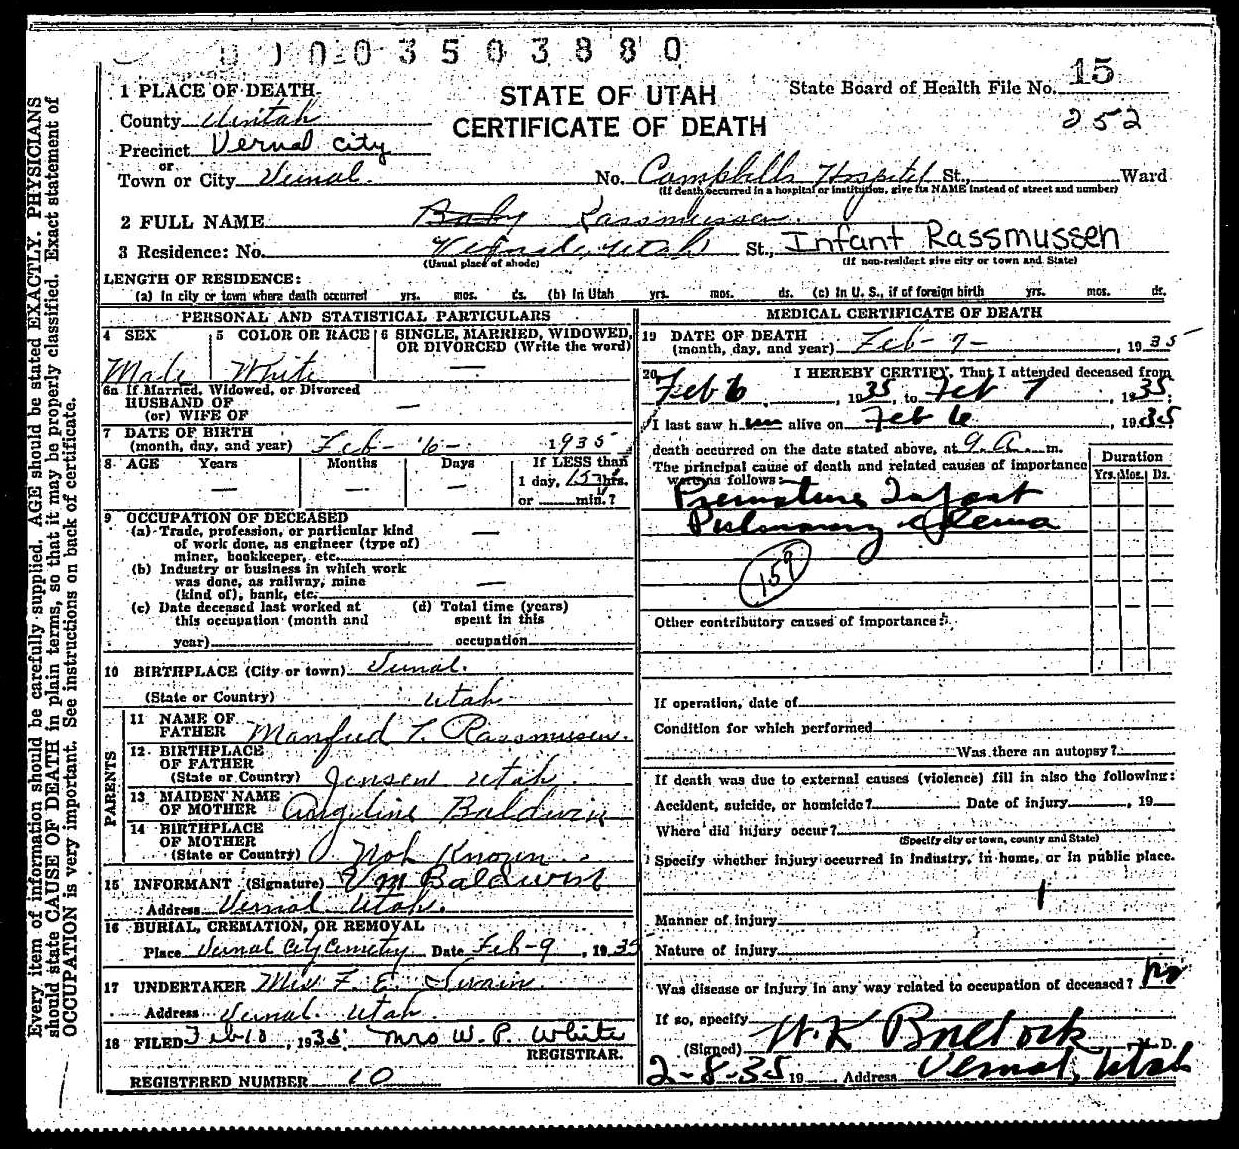 003503880
STATE OF UTAH
CERTIFICATE OF DEATH
State Board of Health File No. 15
252
1 PLACE OF DEATH.
County Uintah
Precinct Vernal City
or
Town or City Vernal. No. Campbells Hospital St., Ward
(If death occurred in a hospital or institution, give its NAME instead of street and number)
2 FULL NAME Baby Rassmussen.
3 Residence: No. Vernal, Utah St., Infant Rassmussen
(Usual place of abode) (If non-resident give city or town and State)
LENGTH OF RESIDENCE:
(a) In city or town where death occurred yrs. mos. ds. (b) In Utah yrs. mos. ds. (c) In U. S., if of foreign birth yrs. mos. ds.
PERSONAL AND STATISTICAL PARTICULARS
4 SEX 5 COLOR OR RACE 6 SINGLE, MARRIED, WIDOWED, OR DIVORCED (Write the word)
Male White —
6a If Married, Widowed, or Divorced
HUSBAND OF
(or) WIFE OF —
7 DATE OF BIRTH
(month, day, and year) Feb - 6 - 1935
8 AGE Years Months Days If LESS than
— — — 1 day, 15 hrs.
or — min.?
9 OCCUPATION OF DECEASED
(a) Trade, profession, or particular kind
of work done, as engineer (type of)
miner, bookkeeper, etc. —
(b) Industry or business in which work
was done, as railway, mine
(kind of), bank, etc. —
(c) Date deceased last worked at (d) Total time (years)
this occupation (month and spent in this
year) occupation
10 BIRTHPLACE (City or town) Vernal.
(State or Country) Utah
PARENTS
11 NAME OF
FATHER Manfred T. Rassmussen.
12 BIRTHPLACE
OF FATHER
(State or Country) Jensen Utah.
13 MAIDEN NAME
OF MOTHER Angeline Baldwin
14 BIRTHPLACE
OF MOTHER
(State or Country) Not Known
15 INFORMANT (Signature) V M Baldwin
Address Vernal Utah.
16 BURIAL, CREMATION, OR REMOVAL
Place Vernal City Cemetry Date Feb-9, 1935
17 UNDERTAKER F. E. Swain.
Address Vernal Utah.
18 FILED Feb 10, 1935. Mrs W. P. White
REGISTRAR.
REGISTERED NUMBER 10
MEDICAL CERTIFICATE OF DEATH
19 DATE OF DEATH
(month, day, and year) Feb - 7 - , 1935
20 I HEREBY CERTIFY, That I attended deceased from
Feb 6, 1935, to Feb 7, 1935;
I last saw him alive on Feb 6, 1935
death occurred on the date stated above, at 9 A. m.
The principal cause of death and related causes of importance
were as follows: Duration
Yrs. Mos. Ds.
Premature Infant
Pulmonary edema
159
Other contributory causes of importance:
If operation, date of
Condition for which performed
Was there an autopsy?
If death was due to external causes (violence) fill in also the following:
Accident, suicide, or homicide? Date of injury, 19
Where did injury occur?
(Specify city or town, county and State)
Specify whether injury occurred in industry, in home, or in public place.
Manner of injury
Nature of injury
Was disease or injury in any way related to occupation of deceased? No
If so, specify
(Signed) H. K Bullock M. D.
2-8-35 19 Address Vernal, Utah
Every item of information should be carefully supplied. AGE should be stated EXACTLY. PHYSICIANS
should state CAUSE OF DEATH in plain terms, so that it may be properly classified. Exact statement of
OCCUPATION is very important. See instructions on back of certificate.